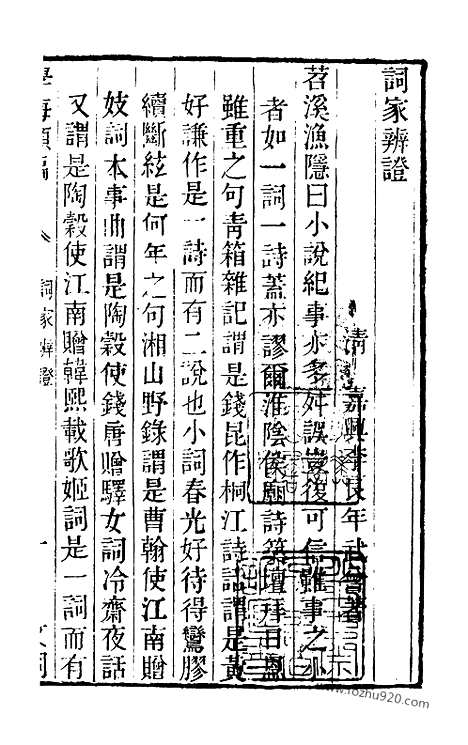 詞家辨證
清 嘉興李良年武曾著
苕溪漁隱曰小說紀事亦多舛誤豈復可信雖事之小
者如一詞一詩蓋亦謬爾淮陰侯廟詩築壇拜日恩
雖重之句青箱雜記謂是錢昆作桐江詩話謂是黃
好謙作是一詩而有二說也小詞春光好待得鸞膠
續斷絃是何年之句湘山野錄謂是曹翰使江南贈
妓詞本事曲謂是陶穀使錢唐贈驛女詞冷齋夜話
又謂是陶穀使江南贈韓熙載歌姬詞是一詞而有
學海類編 詞家辨證 一
www.rozhu920.com